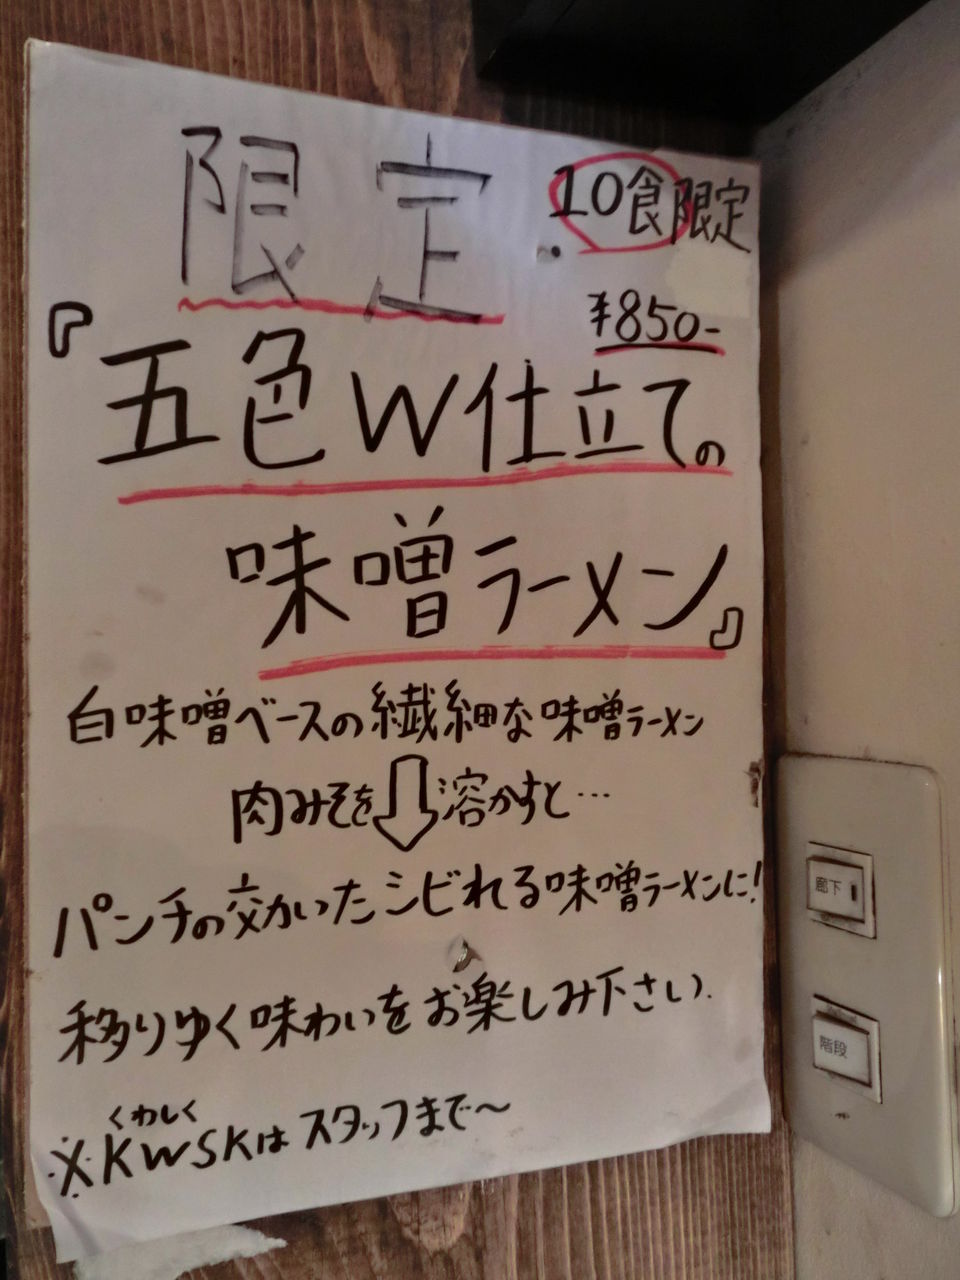 限定
10食限定
¥850-
『五色W仕立ての
味噌ラーメン』
白味噌ベースの繊細な味噌ラーメン
肉みそを⇩溶かすと…
パンチの効いたシビれる味噌ラーメンに!
移りゆく味わいをお楽しみ下さい.
くわしく
※KWSKはスタッフまで〜
廊下
階段